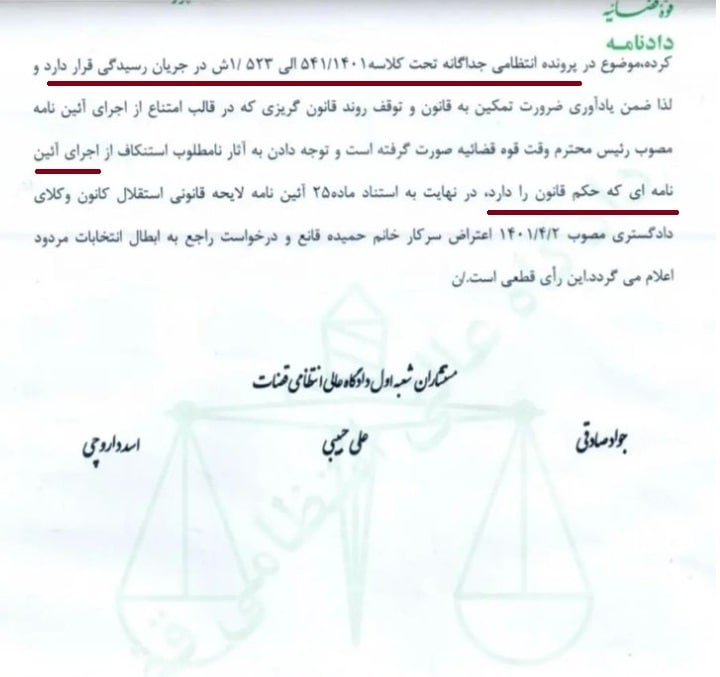 قوه قضائیه
دادنامه
کرده،موضوع در پرونده انتظامی جداگانه تحت کلاسه ۵۴۱/۱۴۰۱ الی ۵۲۳ /۱ش در جریان رسیدگی قرار دارد و
لذا ضمن یادآوری ضرورت تمکین به قانون و توقف روند قانون گریزی که در قالب امتناع از اجرای آئین نامه
مصوب رئیس محترم وقت قوه قضائیه صورت گرفته است و توجه دادن به آثار نامطلوب استنکاف از اجرای آئین
نامه ای که حکم قانون را دارد، در نهایت به استناد ماده۲۵ آئین نامه لایحه قانونی استقلال کانون وکلای
دادگستری مصوب ۱۴۰۱/۴/۲ اعتراض سرکار خانم حمیده قانع و درخواست راجع به ابطال انتخابات مردود
اعلام می گردد.این رأی قطعی است./ن
مستشاران شعبه اول دادگاه عالی انتظامی قضات
جواد صادقی علی حبیبی اسد داروچی
دادگاه عالی انتظامی